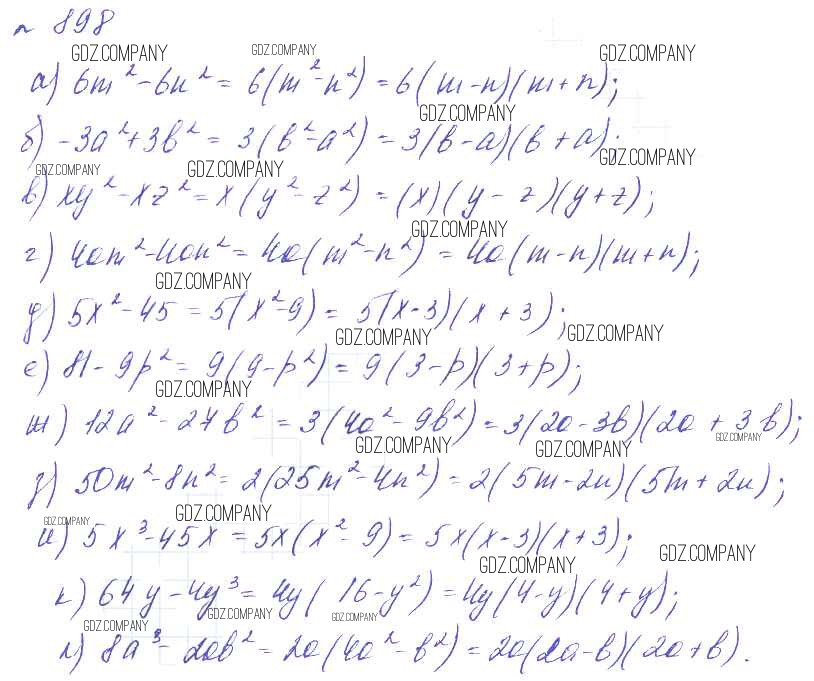 № 898
GDZ.COMPANY GDZ.COMPANY GDZ.COMPANY
а) 6m² - 6n² = 6(m² - n²) = 6(m - n)(m + n);
GDZ.COMPANY
б) -3a² + 3b² = 3(b² - a²) = 3(b - a)(b + a);
GDZ.COMPANY GDZ.COMPANY GDZ.COMPANY
в) xy² - xz² = x(y² - z²) = (x)(y - z)(y + z);
GDZ.COMPANY
г) 4am² - 4an² = 4a(m² - n²) = 4a(m - n)(m + n);
GDZ.COMPANY
д) 5x² - 45 = 5(x² - 9) = 5(x - 3)(x + 3);
GDZ.COMPANY GDZ.COMPANY
е) 81 - 9p² = 9(9 - p²) = 9(3 - p)(3 + p);
GDZ.COMPANY
ж) 12a² - 27b² = 3(4a² - 9b²) = 3(2a - 3b)(2a + 3b);
GDZ.COMPANY GDZ.COMPANY GDZ.COMPANY
з) 50m² - 8n² = 2(25m² - 4n²) = 2(5m - 2n)(5m + 2n);
GDZ.COMPANY GDZ.COMPANY
и) 5x³ - 45x = 5x(x² - 9) = 5x(x - 3)(x + 3);
GDZ.COMPANY GDZ.COMPANY
к) 64y - 4y³ = 4y(16 - y²) = 4y(4 - y)(4 + y);
GDZ.COMPANY GDZ.COMPANY GDZ.COMPANY
л) 8a³ - 2ab² = 2a(4a² - b²) = 2a(2a - b)(2a + b).